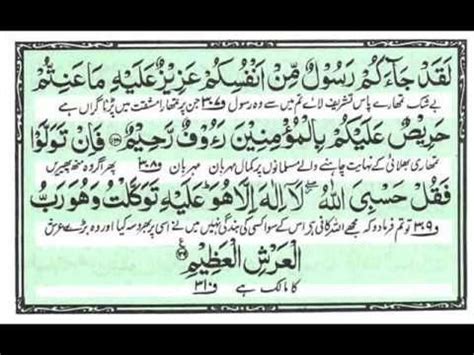 لَقَدْ جَآءَكُمْ رَسُوْلٌ مِّنْ اَنْفُسِكُمْ عَزِيْزٌ عَلَيْهِ مَا عَنِتُّمْ
بے شک تمھارے پاس تشریف لائے تم میں سے وہ رسول ف۳۰۷ جن پر تمھارا مشقت میں پڑنا گراں ہے
حَرِيْصٌ عَلَيْكُمْ بِالْمُؤْمِنِيْنَ رَءُوْفٌ رَّحِيْمٌ فَاِنْ تَوَلَّوْا
تمھاری بھلائی کے نہایت چاہنے والے مسلمانوں پر کمال مہربان مہربان ف۳۰۸ پھر اگر وہ منھ پھیریں
فَقُلْ حَسْبِىَ اللّٰهُ لَاۤ اِلٰهَ اِلَّا هُوَ عَلَيْهِ تَوَكَّلْتُ وَهُوَ رَبُّ
ف۳۰۹ تو تم فرما دو کہ مجھے اللہ کافی ہے اس کے سوا کسی کی بندگی نہیں میں نے اسی پر بھروسہ کیا اور وہ بڑے عرش
الْعَرْشِ الْعَظِيْمِ
کا مالک ہے ف۳۱۰